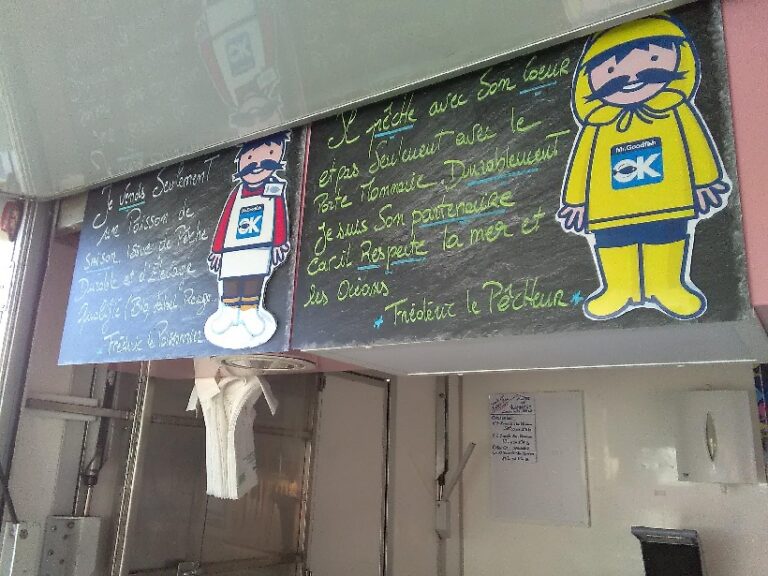 Je vends Seulement
un Poisson de
saison issue de Pêche
Durable et d'Elevage
Qualifié "Big label" Rouge
Frédéric le Poissonnier
OK
Il pêche avec Son Coeur
et pas Seulement avec le
Porte Monnaie Durablement
Je suis Son partenaire
car il Respecte la mer et
les Océans
Frédéric le Pêcheur
Mr.Goodfish
OK